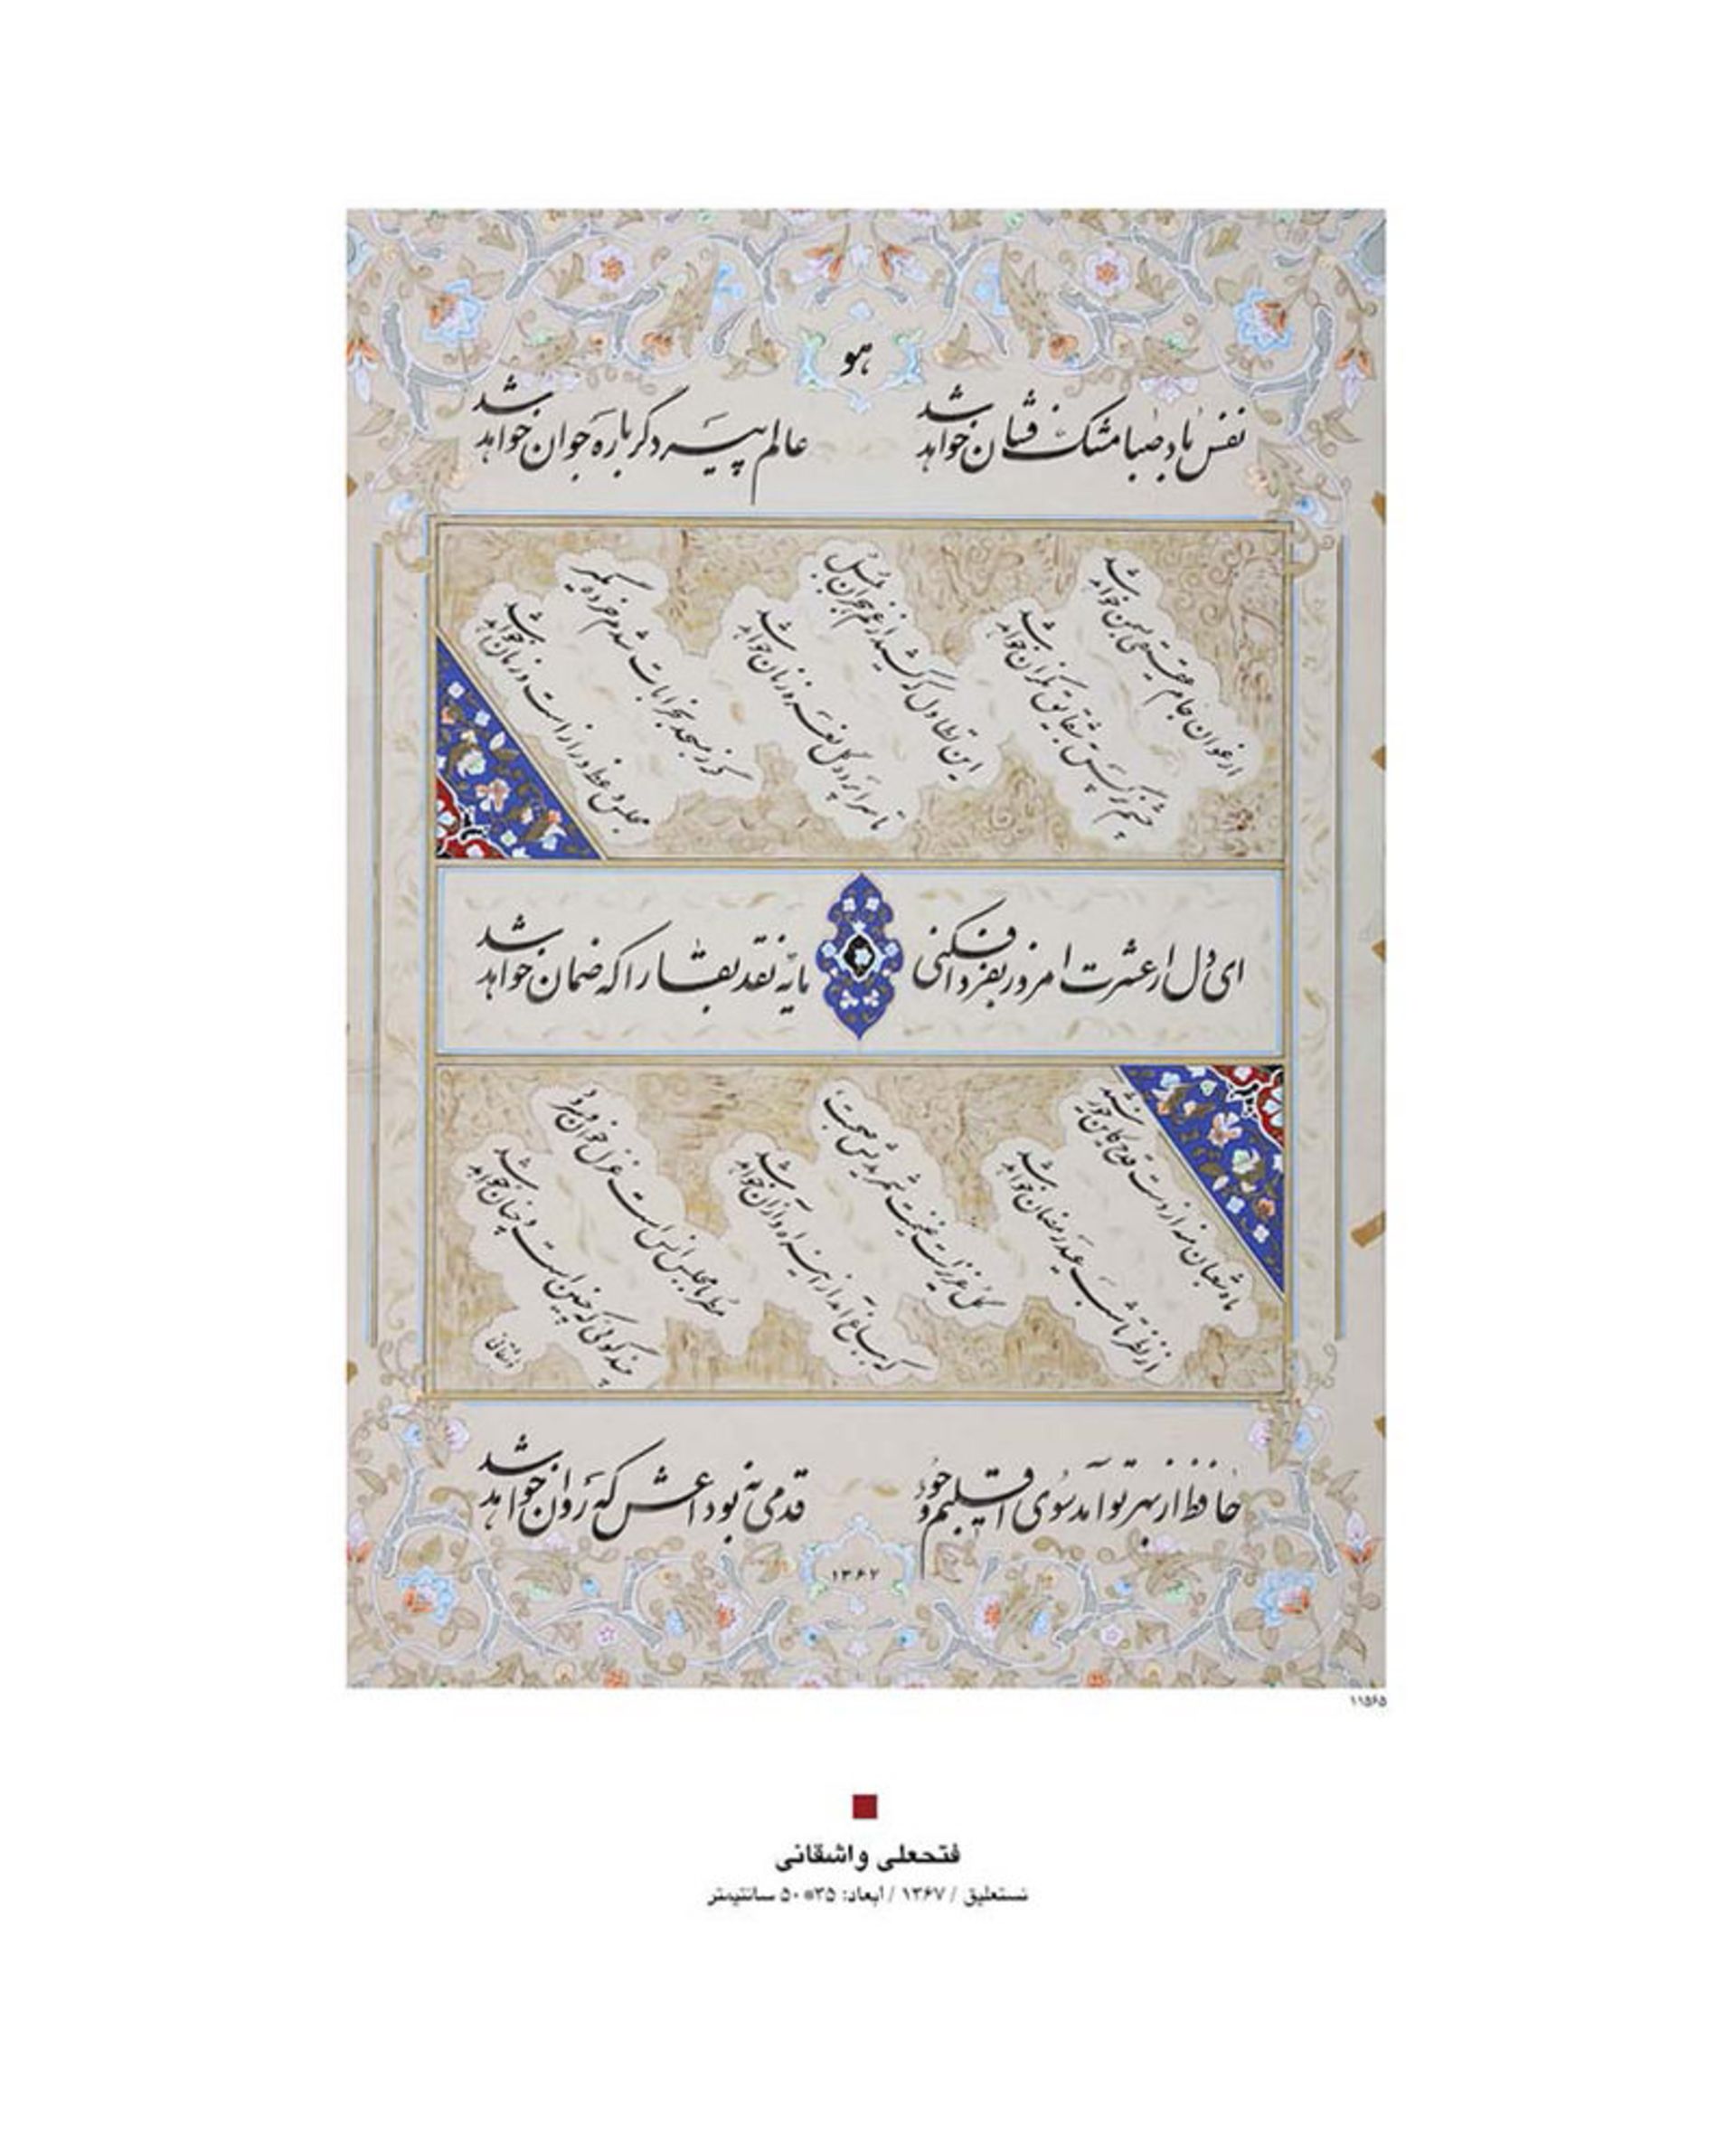 هو
نفس باد صبا مشک فشان خواهد شد
عالم پیر دگر باره جوان خواهد شد
ارغوان جام عقیقی بسمن خواهد
چشم نرگس بشقایق نگران خواهد شد
این تطاول که کشید از غم هجران بلبل
تا سراپرده گل نعره زنان خواهد شد
گر ز مسجد بخرابات شدم خرده مگیر
مجلس وعظ دراز است و زمان خواهد شد
ای دل ار عشرت امروز بفردا فکنی
مایه نقد بقا را که ضمان خواهد شد
ماه شعبان منه از دست قدح کاین خورشید
از نظر تا شب عید رمضان خواهد شد
گل عزیز است غنیمت شمریدش صحبت
که بباغ آمد از این راه و از آن خواهد شد
مطربا مجلس انس است غزل خوان و سرود
چند گوئی که چنین است و چنان خواهد شد
واشقانی
حافظ از بهر تو آمد سوی اقلیم وجود
قدمی نه بوداعش که روان خواهد شد
۱۳۶۷
۱۱۵۶۵
فتحعلی واشقانی
نستعلیق / ۱۳۶۷ / ابعاد: ۳۵*۵۰ سانتیمتر